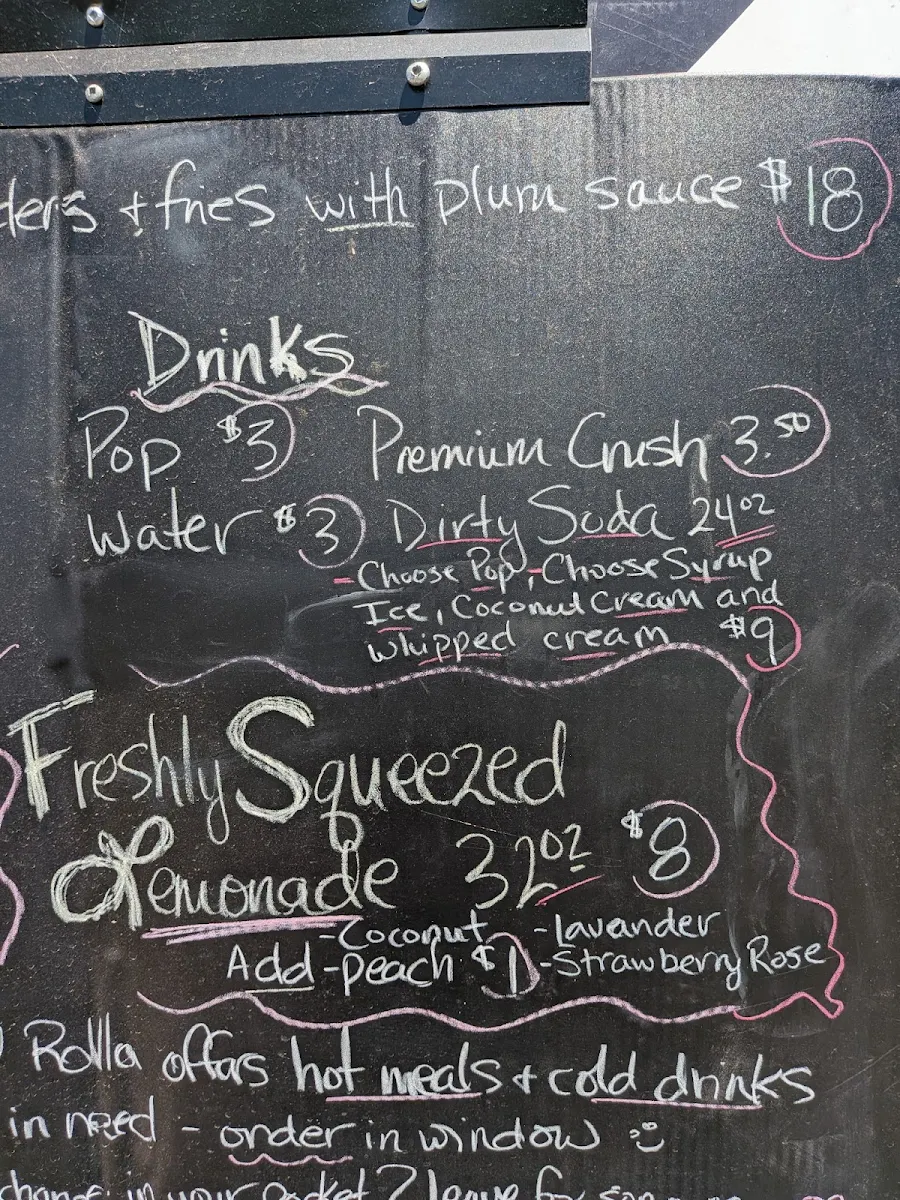 ders + fries with plum sauce $18
Drinks
Pop $3 Premium Crush 3.50
Water $3 Dirty Soda 24oz
- Choose Pop, - Choose Syrup
Ice, Coconut Cream and
whipped cream $9
Freshly Squeezed
Lemonade 32oz $8
-Coconut -Lavander
Add -peach $1 -Strawberry Rose
Rolla offers hot meals + cold drinks
in need - order in window
change in your pocket? leave for